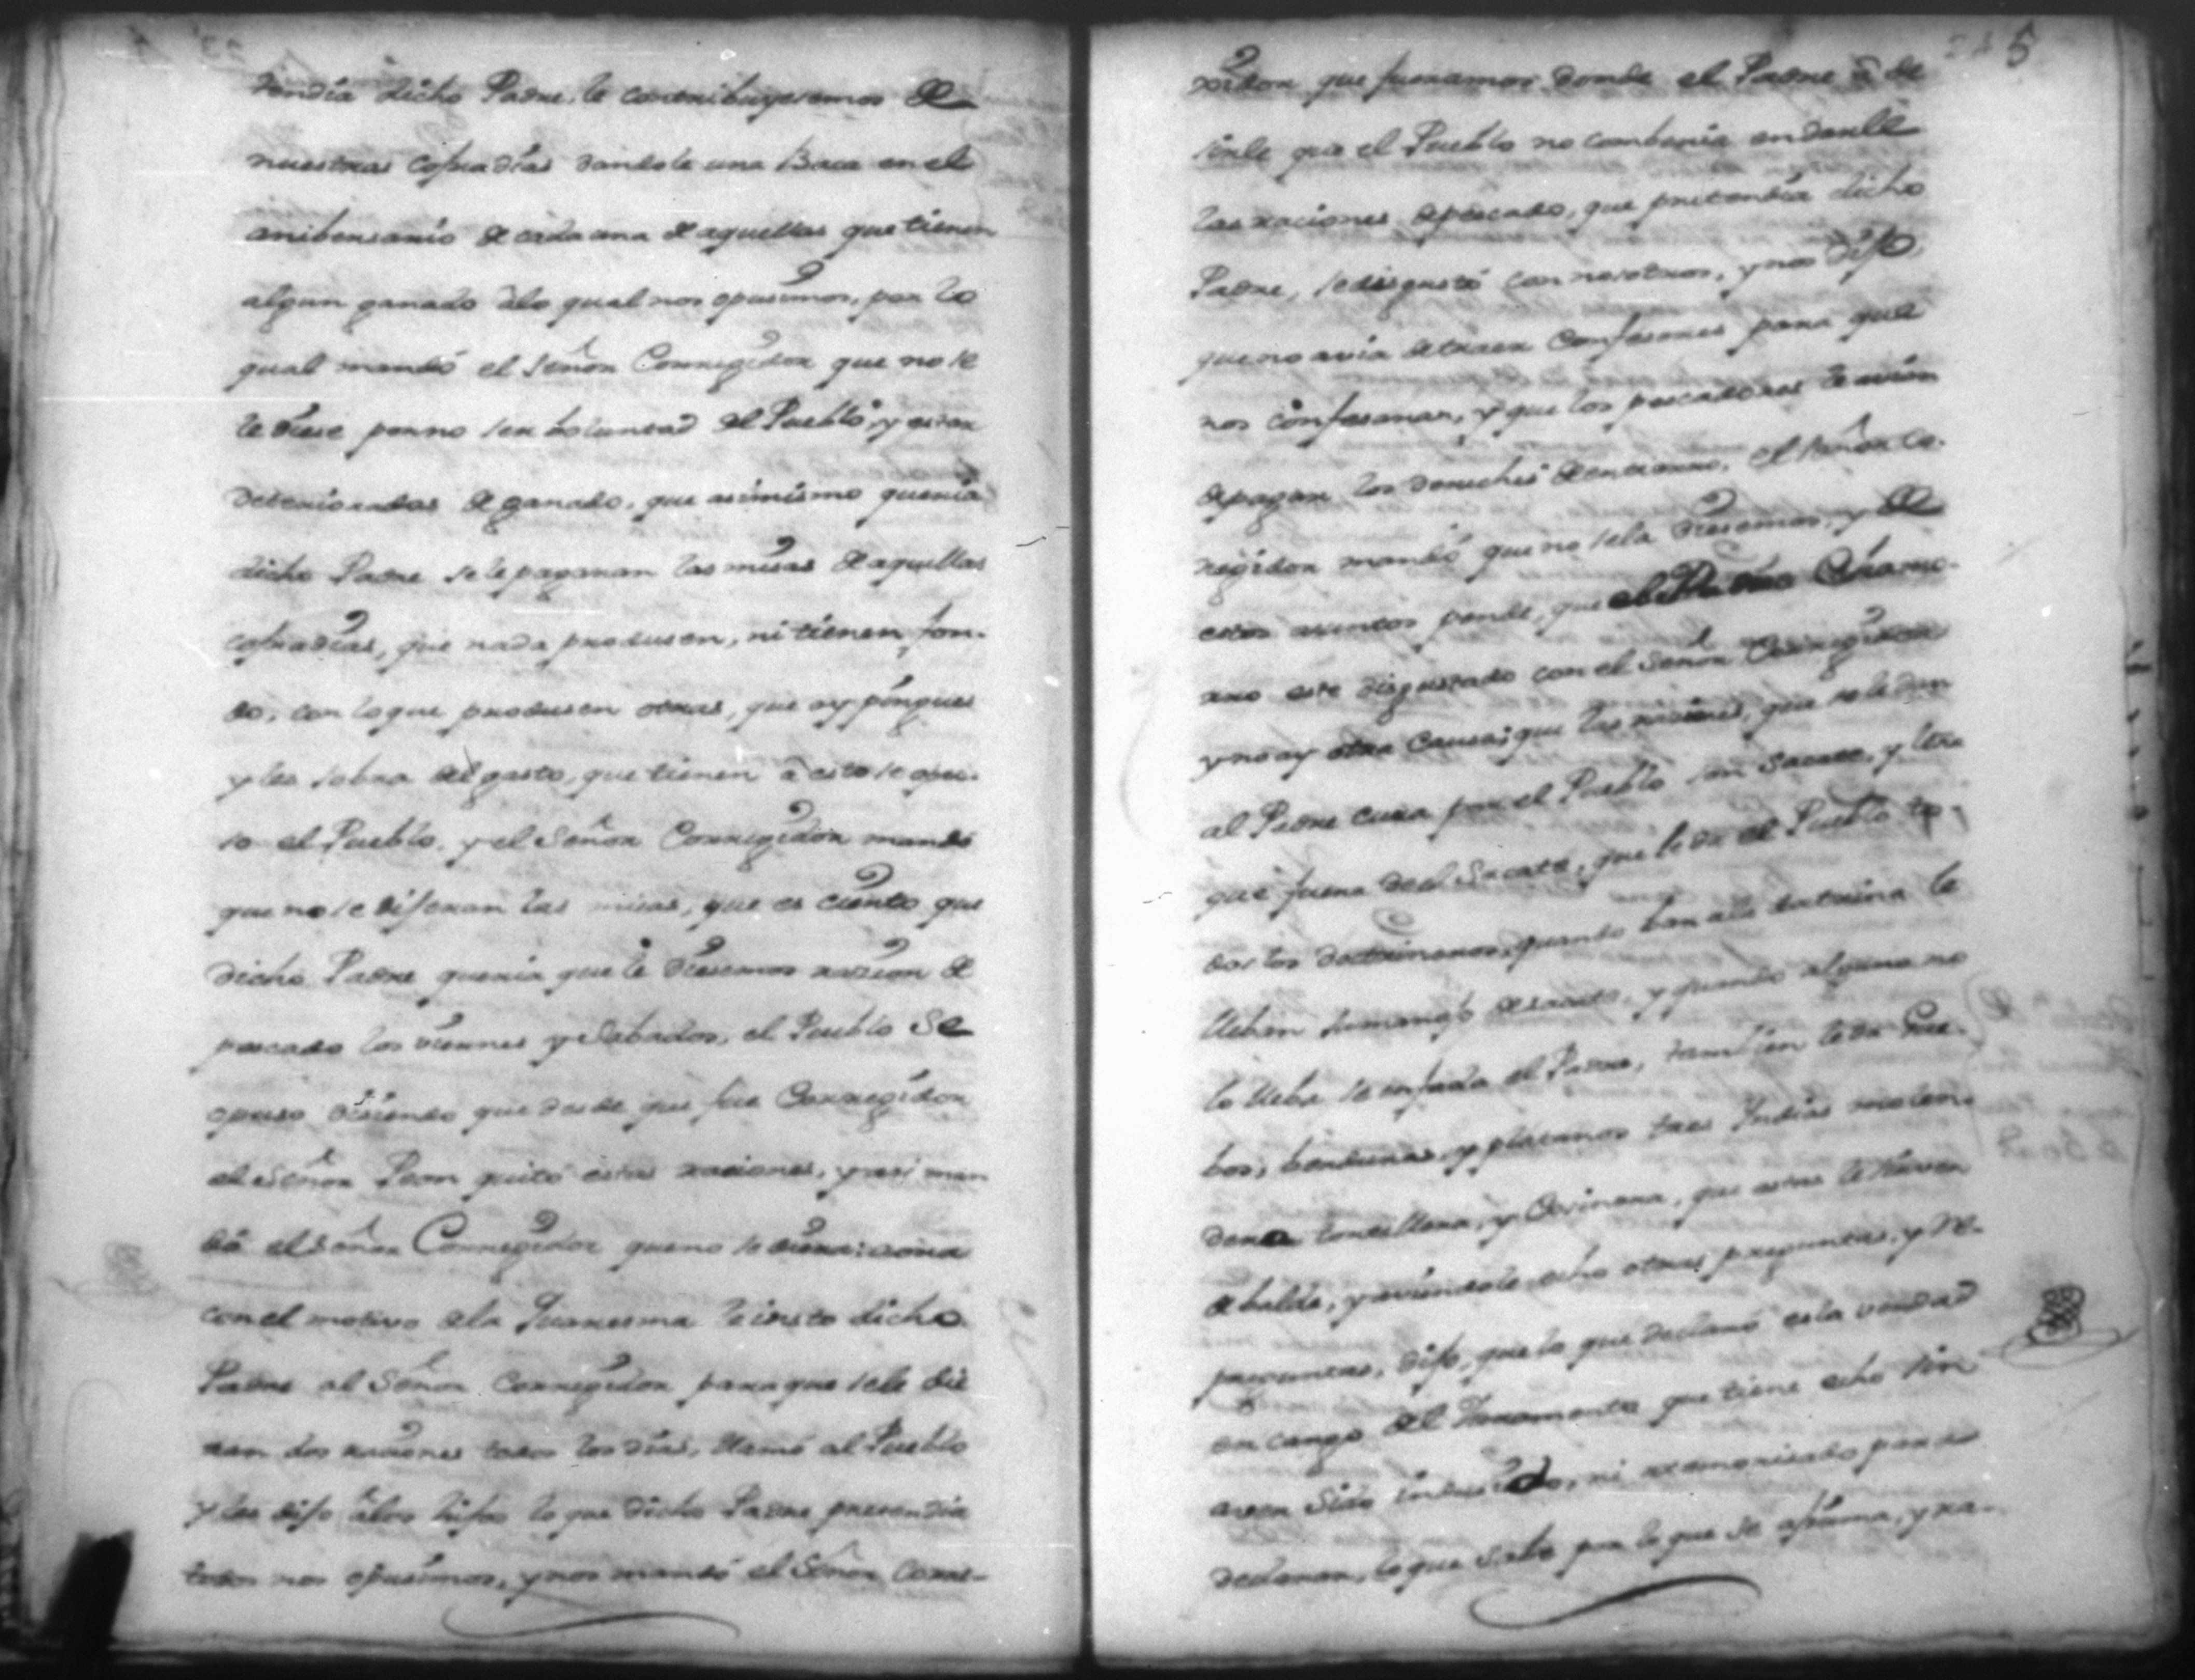 tendia dicho Padre, le contribuyesemos de
nuestras cofradias dandole una Baca en el
anibersario de cada una de aquellas que tienen
algun ganado alo qual nos opusimos, por lo
qual mandó el Señor Corregidor que no se
le diese por no ser boluntad del Pueblo, y estar
deterioradas de ganado, que asimismo queria
dicho Padre se le pagaran las misas de aquellas
cofradias, que nada produsen, ni tienen fon-
do, con lo que produsen otras, que ay pingues
y les sobra del gasto, que tienen â esto se opu-
so el Pueblo, y el Señor Corregidor mandó
que no se dijeran las misas, que es cierto que
dicho Padre queria que le diesemos racion de
pescado los viernes y Sabados, el Pueblo se
opuso disiendo que desde que fue Corregidor
el Señor Leon quitó estas raciones, y asi man
dó el Señor Corregidor que no se diera:
con el motivo de la Quaresma le insto dicho
Padre al Señor Corregidor para que se le die
ran dos raciones todos los dias, llamó al Pueblo
y les dijo âlos hijos lo que dicho Padre pretendia
todos nos opusimos, y nos mandó el Señor Corre-
5
gidor que fueramos donde el Padre â de
sirle que el Pueblo no combenia en darle
las raciones de pescado, que pretendia dicho
Padre, se disgustó con nosotros, y nos dijo,
que no avia de traer Confesores para que
nos confesaran, y que los pescadores le avian
de pagar los derechos de entierro, el Señor Co-
rregidor mandó que no se la diesemos, y de
estos asuntos pende, que el Padre
este disgustado con el Señor Corregidor
y no ay otra causa; que las raciones, que se le dan
al Padre Cura por el Pueblo son Sacate, y leña
que fuera del Sacate, que le da el Pueblo to-
dos los doctrineros, quando ban ala doctrina le
lleban su manojo de sacate, y quando alguno no
lo lleba se enfada el Padre, tambien le da Hue-
bos, berduras, y platanos tres Indias molen-
dera tortillera, y Cosinera, que estas le sirven
de balde, y aviendole echo otras preguntas, y re-
preguntas, dijo, que lo que declaró es la verdad
en cargo del Juramento que tiene echo sin
aver sido indusido, ni atemorisado para
declarar, lo que sabe por lo que se afirma, y ra-